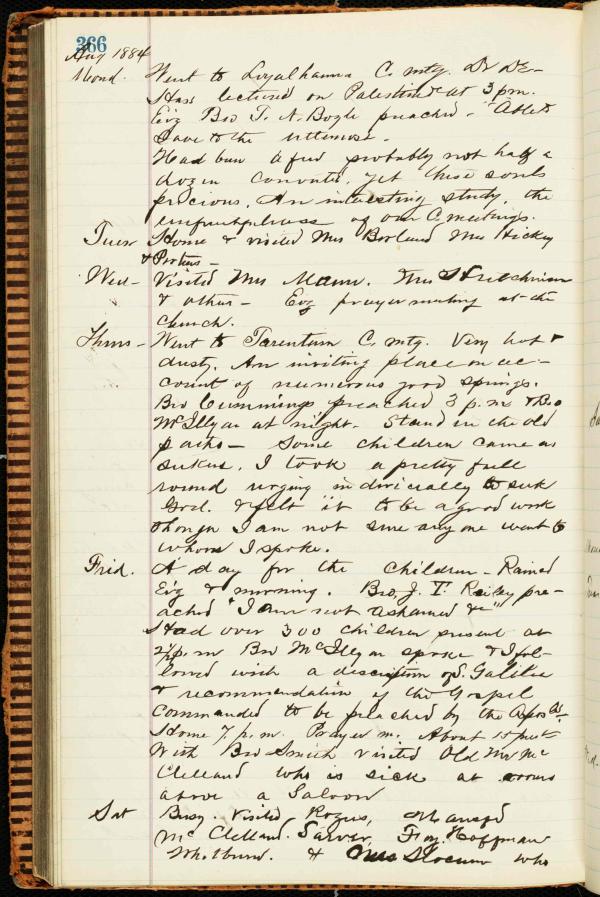 366
Aug 1884
Mond. Went to Loyalhanna C. mtg. Dr De-
Hass lectured on Palestine at 3 p.m.
Ev'g Bro T. N. Boyle preached - "Able to
Save to the uttermost.
Had been a few probably not half a
dozen converts, yet these souls
precious. An interesting study, the
unfruitfulness of our C. meetings.
Tues Home & visited Mrs Borland Mrs Hickey
& Porters -
Wed - Visited Mrs Mann. Mrs Hutchinson
& others - Evg prayer meeting at the
church.
Thurs - Went to Tarentum C. mtg. Very hot &
dusty. An inviting place on ac-
count of numerous good springs.
Bro Cummings preached 3 p.m. & Bro
McIlyar at night. Stand in the old
paths - Some children came as
seekers. I took a pretty full
round urging individually to seek
God. & felt it to be a good work
though I am not sure any one went to
whom I spoke.
Frid. A day for the children - Rained
Ev'g & morning. Bro. J. T. Riley pre-
ached "I am not ashamed &c"
Had over 300 children present at
2½ p.m Bro McIlyar spoke & I fol-
lowed with a description of S. Galilee
& recommendation of the Gospel
commanded to be preached by the
Home 7 p.m. Prayer m. About 15 pres-
With Bro Smith visited Old Mr Mc
Clelland who is sick at rooms
above a Saloon
Sat Busy. Visited Rogers,
McClelland. Sarver, Hoffman
& Mrs Slocum who